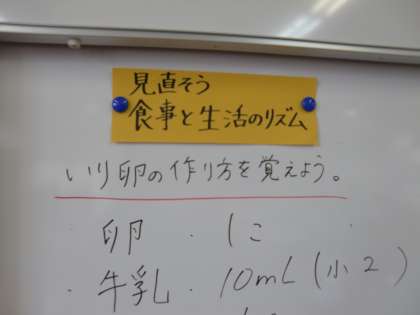 見直そう
食事と生活のリズム
いり卵の作り方を覚えよう。
卵 . 1こ
・牛乳. 10mL(小2)